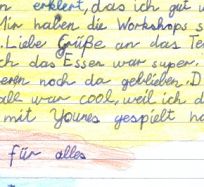 n erklärt, das ich gut u
Mir haben die Workshops s
. Liebe Grüße an das Te
ch das Essen war super.
eren noch da geblieben. D
all war cool, weil ich d
mit Younes gespielt ha
für alles